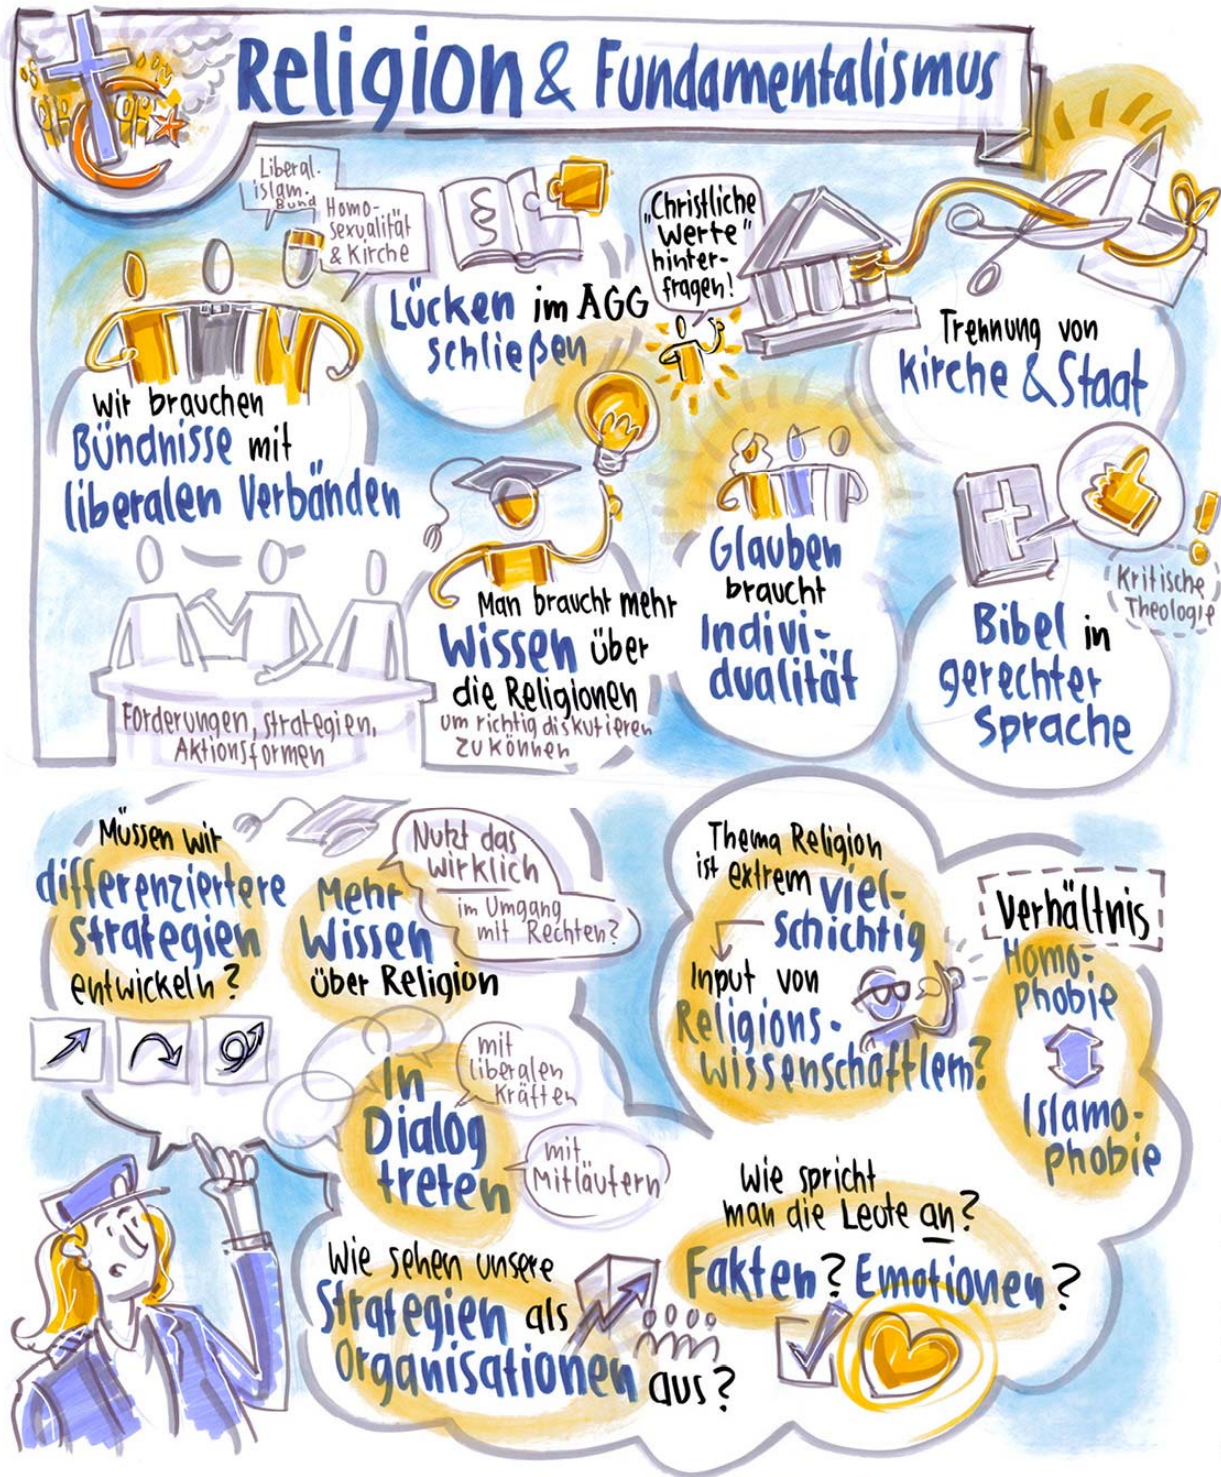 Religion & Fundamentalismus
Liberal.
islam.
Bund
Homo-
sexualität
& Kirche
Wir brauchen
Bündnisse mit
liberalen Verbänden
Forderungen, Strategien,
Aktionsformen
§
Lücken im AGG
schließen
"Christliche
Werte"
hinter-
fragen!
Trennung von
Kirche & Staat
Man braucht mehr
Wissen über
die Religionen
um richtig diskutieren
zu können
Glauben
braucht
Indivi-
dualität
Bibel in
gerechter
Sprache
Kritische
Theologie
Müssen wir
differenziertere
Strategien
entwickeln?
Mehr
Wissen
über Religion
Nutzt das
wirklich
im Umgang
mit Rechten?
In
Dialog
treten
mit
liberalen
Kräften
mit
Mitläutern
Wie sehen unsere
Strategien als
Organisationen aus?
Thema Religion
ist extrem viel-
schichtig
Input von
Religions-
wissenschaftlern?
Verhältnis
Homo-
phobie
Islamo-
phobie
Wie spricht
man die Leute an?
Fakten? Emotionen?